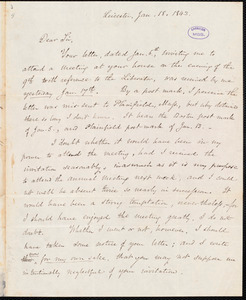 Leicester, Jan. 18. 1843.
Dear Sir,
Your letter, dated Jan. 6th, inviting me to
attend a meeting at your house on the evening of the
9th with reference to the Liberator, was received by me
yesterday, Jan. 17th. By a post mark, I perceive the
letter was missent to Plainfield, Mass, but why or how
I do not know. It bears the Boston post mark
of Jan 6, and Plainfield post-mark of Jan. 13.
I doubt whether it would have been in my
power to attend the meeting, had I received the
invitation seasonably, inasmuch as it is my purpose
to attend the annual meeting next week; and I could
not well be absent twice so nearly in succession. It
would have been a strong temptation, nevertheless, for
I should have enjoyed the meeting greatly, I do not
doubt. Whether I went or not, however, I should
have taken some notice of your letter; and I write
for my own sake, that you may not suppose me
intentionally neglectful of your invitation.